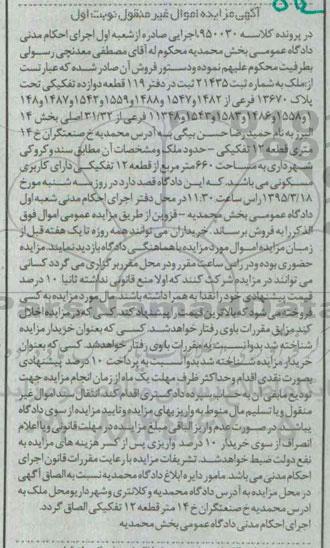 آگهی مزایده اموال غیر منقول نوبت اول
در پرونده کلاسه ۹۵۰۰۳۰ اجرایی صادره از شعبه اول اجرای احکام مدنی
دادگاه عمومی بخش محمدیه محکوم له آقای مصطفی معدنچی رسولی
بطرفیت محکوم علیهم نموده و دستور فروش آن صادر شده که عبارتست
از:ملک به شماره ثبت ۲۱۴۳۵ ثبت در دفتر ۱۱۹ قطعه دوازده تفکیکی تحت
پلاک ۱۳۶۷۰ فرعی از ۱۴۸۲و۱۵۴۷و۱۴۸۸و۱۵۵۹و۱۵۴۲و۱۴۸۷و۱۴۸
و۱۵۵۸و۱۴۸۶و۱۵۸۳و۱۵۴۳و۱۱۳۴۸ فرعی از ۳۱/۳۲ اصلی بخش ۱۴
البرز به نام حمیدرضا حسن بیگی به آدرس محمدیه خ صنعتگران خ ۱۴
متری قطعه ۱۲ تفکیکی - حدود ملک و مشخصات آن مطابق سند و کروکی
شهرداری به مساحت ۶۶۰ متر مربع از قطعه ۱۲ تفکیکی دارای کاربری
مسکونی می باشد. که این دادگاه قصد دارد در روز سه شنبه مورخ
۱۳۹۵/۳/۱۸ راس ساعت ۱۱:۳۰ در محل دفتر اجرای احکام مدنی شعبه اول
دادگاه عمومی بخش محمدیه - قزوین از طریق مزایده عمومی اموال فوق
الذکر را به فروش برساند. خریداران می توانند همه روزه تا یک هفته قبل از
زمان مزایده اموال مورد مزایده با هماهنگی دادگاه بازدید نمایند. مزایده
حضوری بوده و در راس ساعت مقرر و در محل مقرر برگزاری می گردد کسانی
می توانند در مزایده شرکت کنند که اولا منع قانونی نداشته ثانیا ۱۰ درصد
قیمت پیشنهادی خود را نقدا به همراه داشته باشند. مال مورد مزایده به کسی
فروخته می شود که بالاترین قیمت را پیشنهاد کند. کسی که در مزایده اخلال
کند مزایق مقررات باوی رفتار خواهد شد. کسی که بعنوان خریدار مزایده
شناخته شد بدوا نسبت به مقررات باوی رفتار خواهد شد. کسی که بعنوان
خریدار مزایده شناخته شد بدوا نسبت به پرداخت ۱۰ درصد پیشنهادی
بصورت نقدی اقدام و حداکثر ظرف مهلت یک ماه از زمان انجام مزایده جهت
تودیع مابقی آن به حساب سپرده دادگستری اقدام کند. انتقال سند اموال غیر
منقول و یا تسلیم مال منوط به واریز بهای مزایده و تایید مزایده از سوی دادگاه
میباشد. در صورت عدم واریز الباقی مبلغ مزایده در مهلت قانونی و یا اعلام
انصراف از سوی خریدار ۱۰ درصد واریزی پس از کسر هزینه های مزایده به
نفع دولت ضبط خواهد شد. تشریفات مزایده با رعایت مقررات قانون اجرای
احکام مدنی می باشد. مامور دایره ابلاغ دادگاه محمدیه نسبت به الصاق آگهی
در محل مزایده به آدرس دادگاه محمدیه و کلانتری و شهرداری و محل ملک به
آدرس محمدیه خ صنعتگران خ ۱۴ متر قطعه ۱۲ تفکیکی الصاق گردد.
اجرای احکام مدنی دادگاه عمومی بخش محمدیه